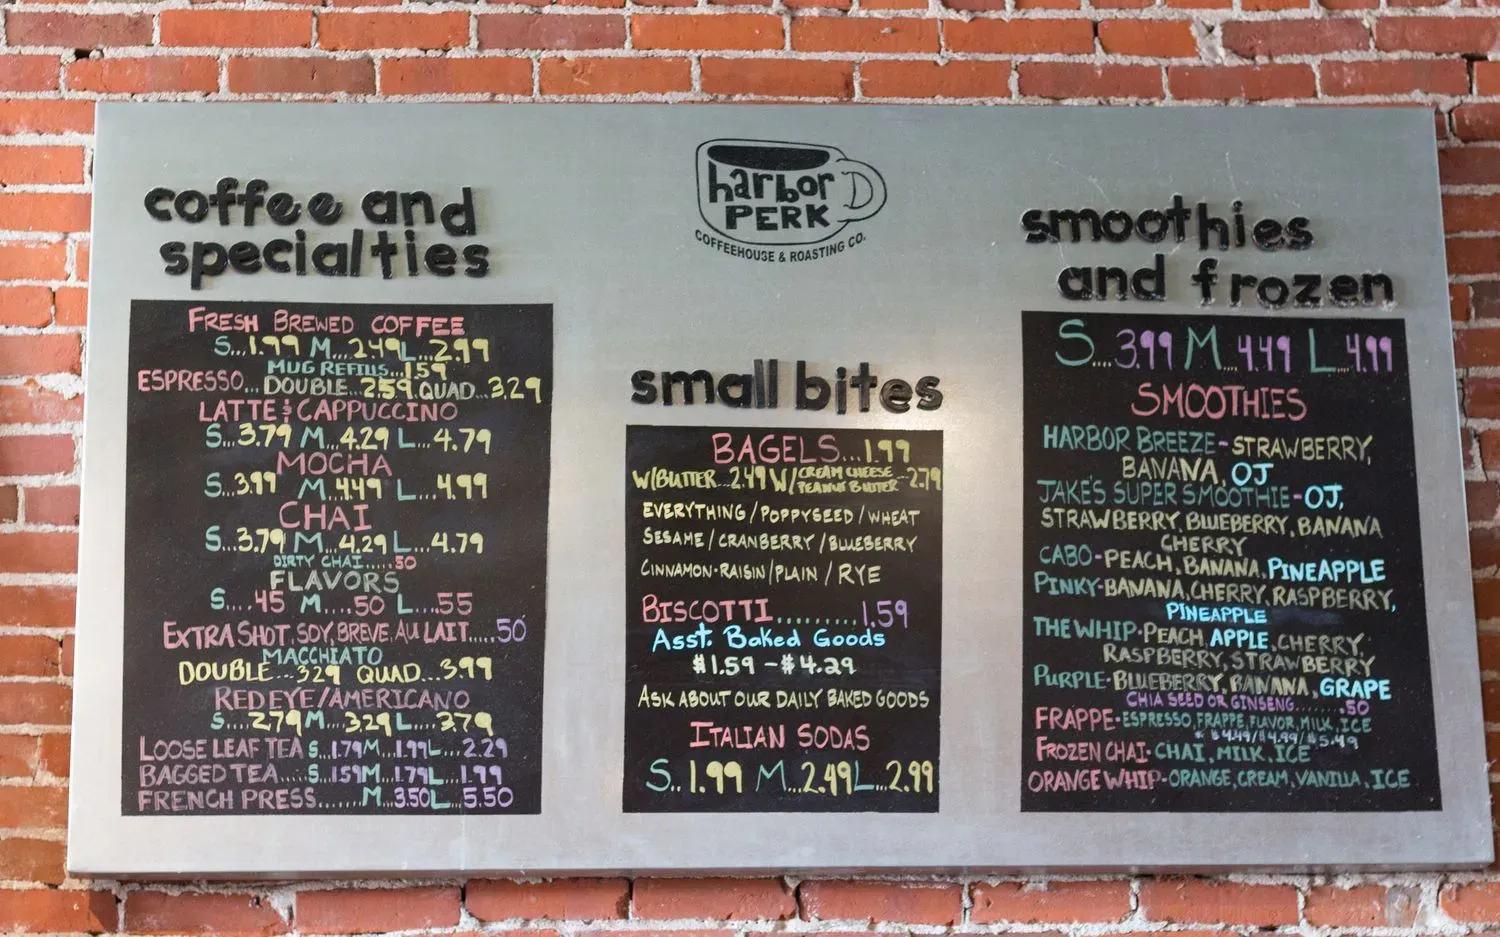 coffee and
specialties
FRESH BREWED COFFEE
S...1.99 M...2.49 L...2.99
MUG REFILLS...1.59
ESPRESSO...DOUBLE..2.59.QUAD...3.29
LATTE & CAPPUCCINO
S...3.79 M...4.29 L...4.79
MOCHA
S...3.99 M...4.49 L...4.99
CHAI
S...3.79 M...4.29 L...4.79
DIRTY CHAI.....50
FLAVORS
S....45 M....50 L....55
EXTRA SHOT, SOY, BREVE, AU LAIT.....50
MACCHIATO
DOUBLE...3.29 QUAD...3.99
REDEYE/AMERICANO
S...2.79 M...3.29 L...3.79
LOOSE LEAF TEA S...1.79 M...1.99 L...2.29
BAGGED TEA.....S...1.59 M...1.79 L...1.99
FRENCH PRESS.......M...3.50 L...5.50
harbor
PERK
COFFEEHOUSE & ROASTING CO.
small bites
BAGELS...1.99
W/BUTTER...2.49 W/ CREAM CHEESE
PEANUT BUTTER ..2.79
EVERYTHING/POPPYSEED/WHEAT
SESAME/CRANBERRY/BLUEBERRY
CINNAMON-RAISIN/PLAIN/RYE
BISCOTTI.........1.59
Asst. Baked Goods
$1.59 - $4.29
ASK ABOUT OUR DAILY BAKED GOODS
ITALIAN SODAS
S..1.99 M...2.49 L...2.99
smoothies
and frozen
S....3.99 M..4.49 L..4.99
SMOOTHIES
HARBOR BREEZE - STRAWBERRY,
BANANA, OJ
JAKE'S SUPER SMOOTHIE - OJ,
STRAWBERRY, BLUEBERRY, BANANA
CHERRY
CABO - PEACH, BANANA, PINEAPPLE
PINKY - BANANA, CHERRY, RASPBERRY,
PINEAPPLE
THE WHIP - PEACH, APPLE, CHERRY,
RASPBERRY, STRAWBERRY
PURPLE - BLUEBERRY, BANANA, GRAPE
CHIA SEED OR GINSENG.......50
FRAPPE - ESPRESSO, FRAPPE, FLAVOR, MILK, ICE
* $4.49/$4.99/$5.49
FROZEN CHAI - CHAI, MILK, ICE
ORANGE WHIP - ORANGE, CREAM, VANILLA, ICE